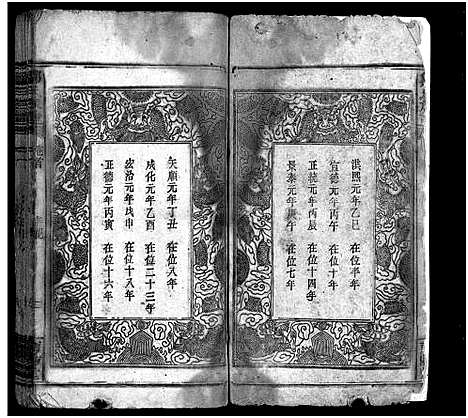 洪熙元年乙巳 在位半年
宣德元年丙午 在位十年
正統元年丙辰 在位十四年
景泰元年庚午 在位七年
天順元年丁丑 在位八年
成化元年乙酉 在位二十三年
宏治元年戊申 在位十八年
正德元年丙寅 在位十六年